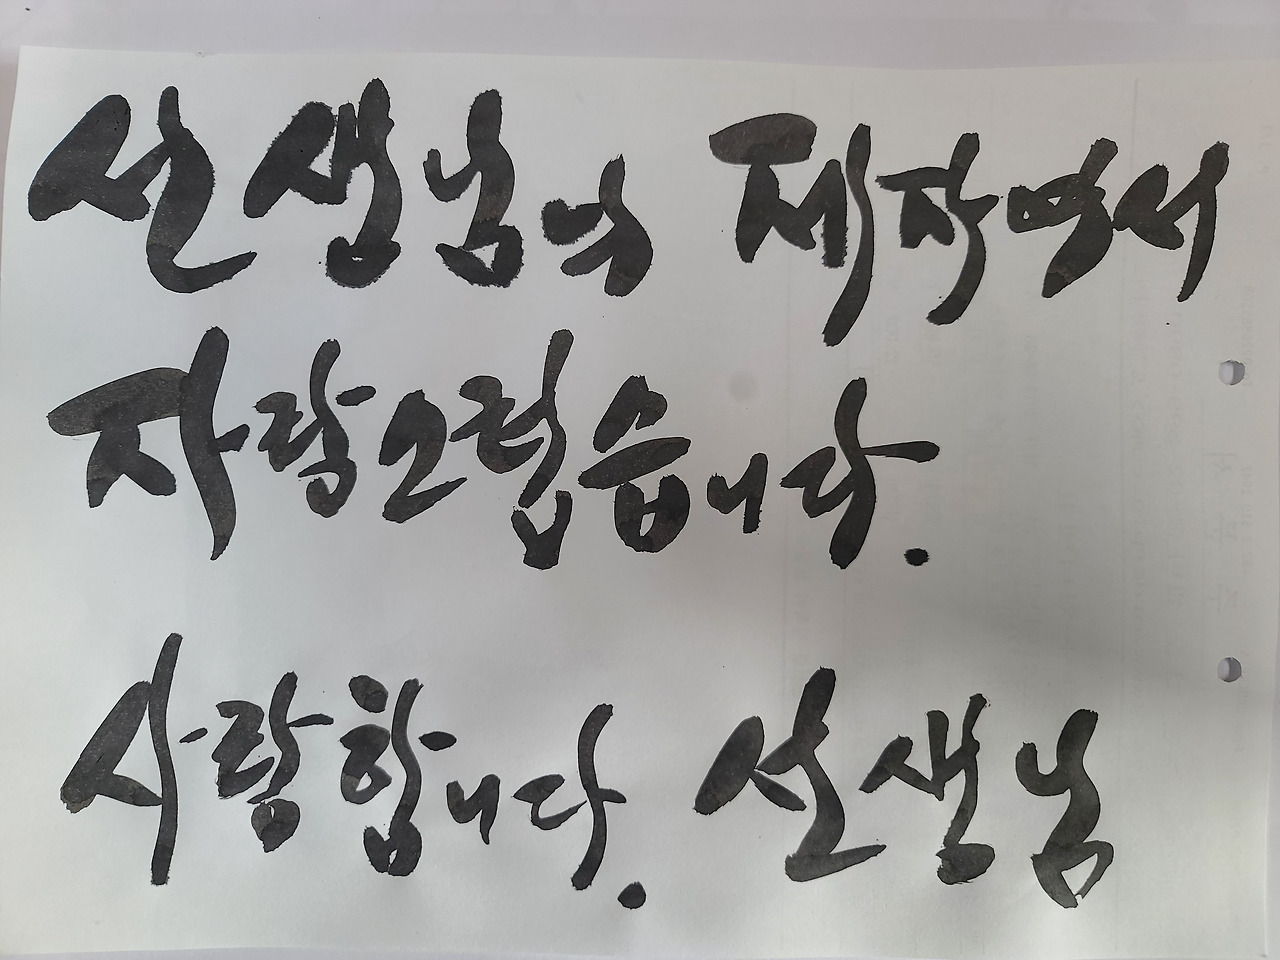 선생님의 제자여서
자랑스럽습니다.
사랑합니다. 선생님